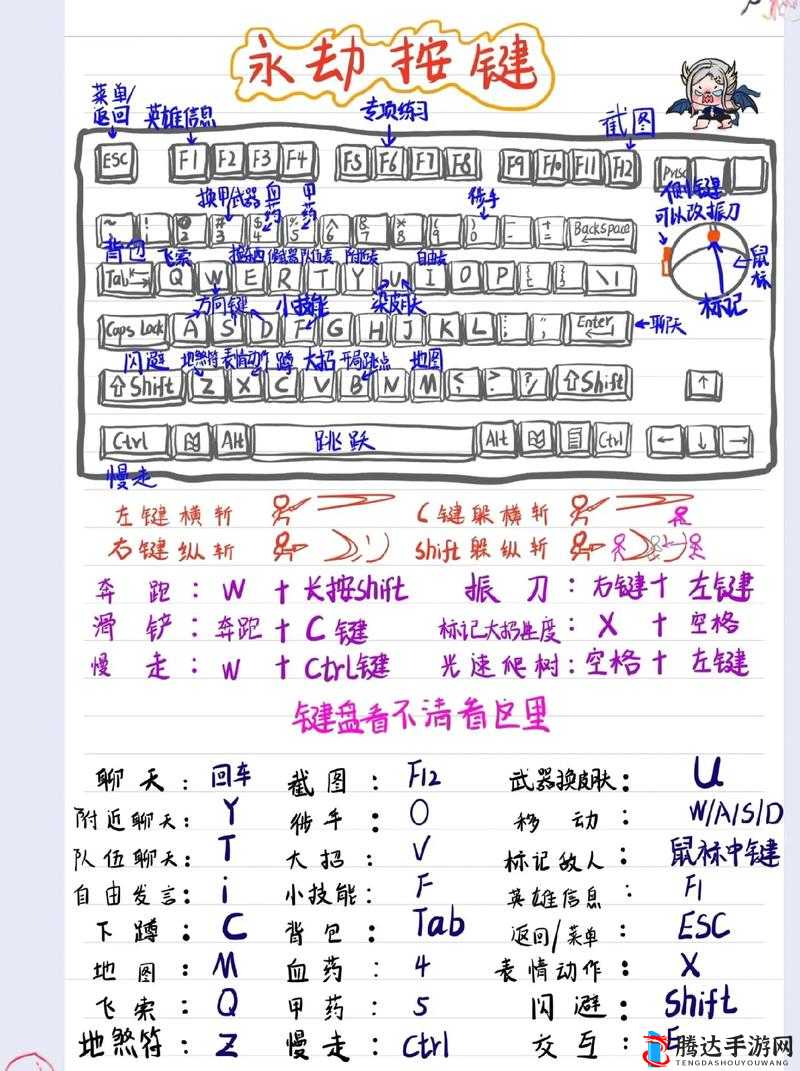 永劫按键
菜单/返回
英雄信息
专项练习
截图
ESC F1 F2 F3 F4 F5 F6 F7 F8 F9 F10 F11 F12 Prtsc
换甲 武器 血药 甲药 徒手
侧键可以改振刀
~ ! 2 # 3 $ 4 % 5 ^ 6 & 7 * 8 ( 9 ) 0 - + = Backspace
背包 飞索 自由麦
Tab Q W E R T Y U I O P \ |
鼠标
标记
方向键 小技能 换皮肤
Caps Lock A S D F G H J K L Enter 聊天
闪避 地煞符 表情动作 蹲 大招 开局跳点 地图
⇧Shift Z X C V B N M ⇧Shift ↑
Ctrl Alt 跳跃 Alt Ctrl ← ↓ →
慢走
左键横斩 C键躲横斩
右键纵斩 shift躲纵斩
奔跑：W + 长按shift 振刀：右键+左键
滑铲：奔跑+C键 标记大招进度：X + 空格
慢走：W + Ctrl键 光速爬树：空格+左键
键盘看不清看这里
聊天：回车 截图：F12 武器换皮肤：U
附近聊天：Y 徒手：0 移动：W/A/S/D
队伍聊天：T 大招：V 标记敌人：鼠标中键
自由发言：i 小技能：F 英雄信息：F1
下蹲：C 背包：Tab 返回/菜单：ESC
地图：M 血药：4 表情动作：X
飞索：Q 甲药：5 闪避：shift
地煞符：Z 慢走：Ctrl 交互：E
腾达手游网
TENGDASHOUYOUWANG